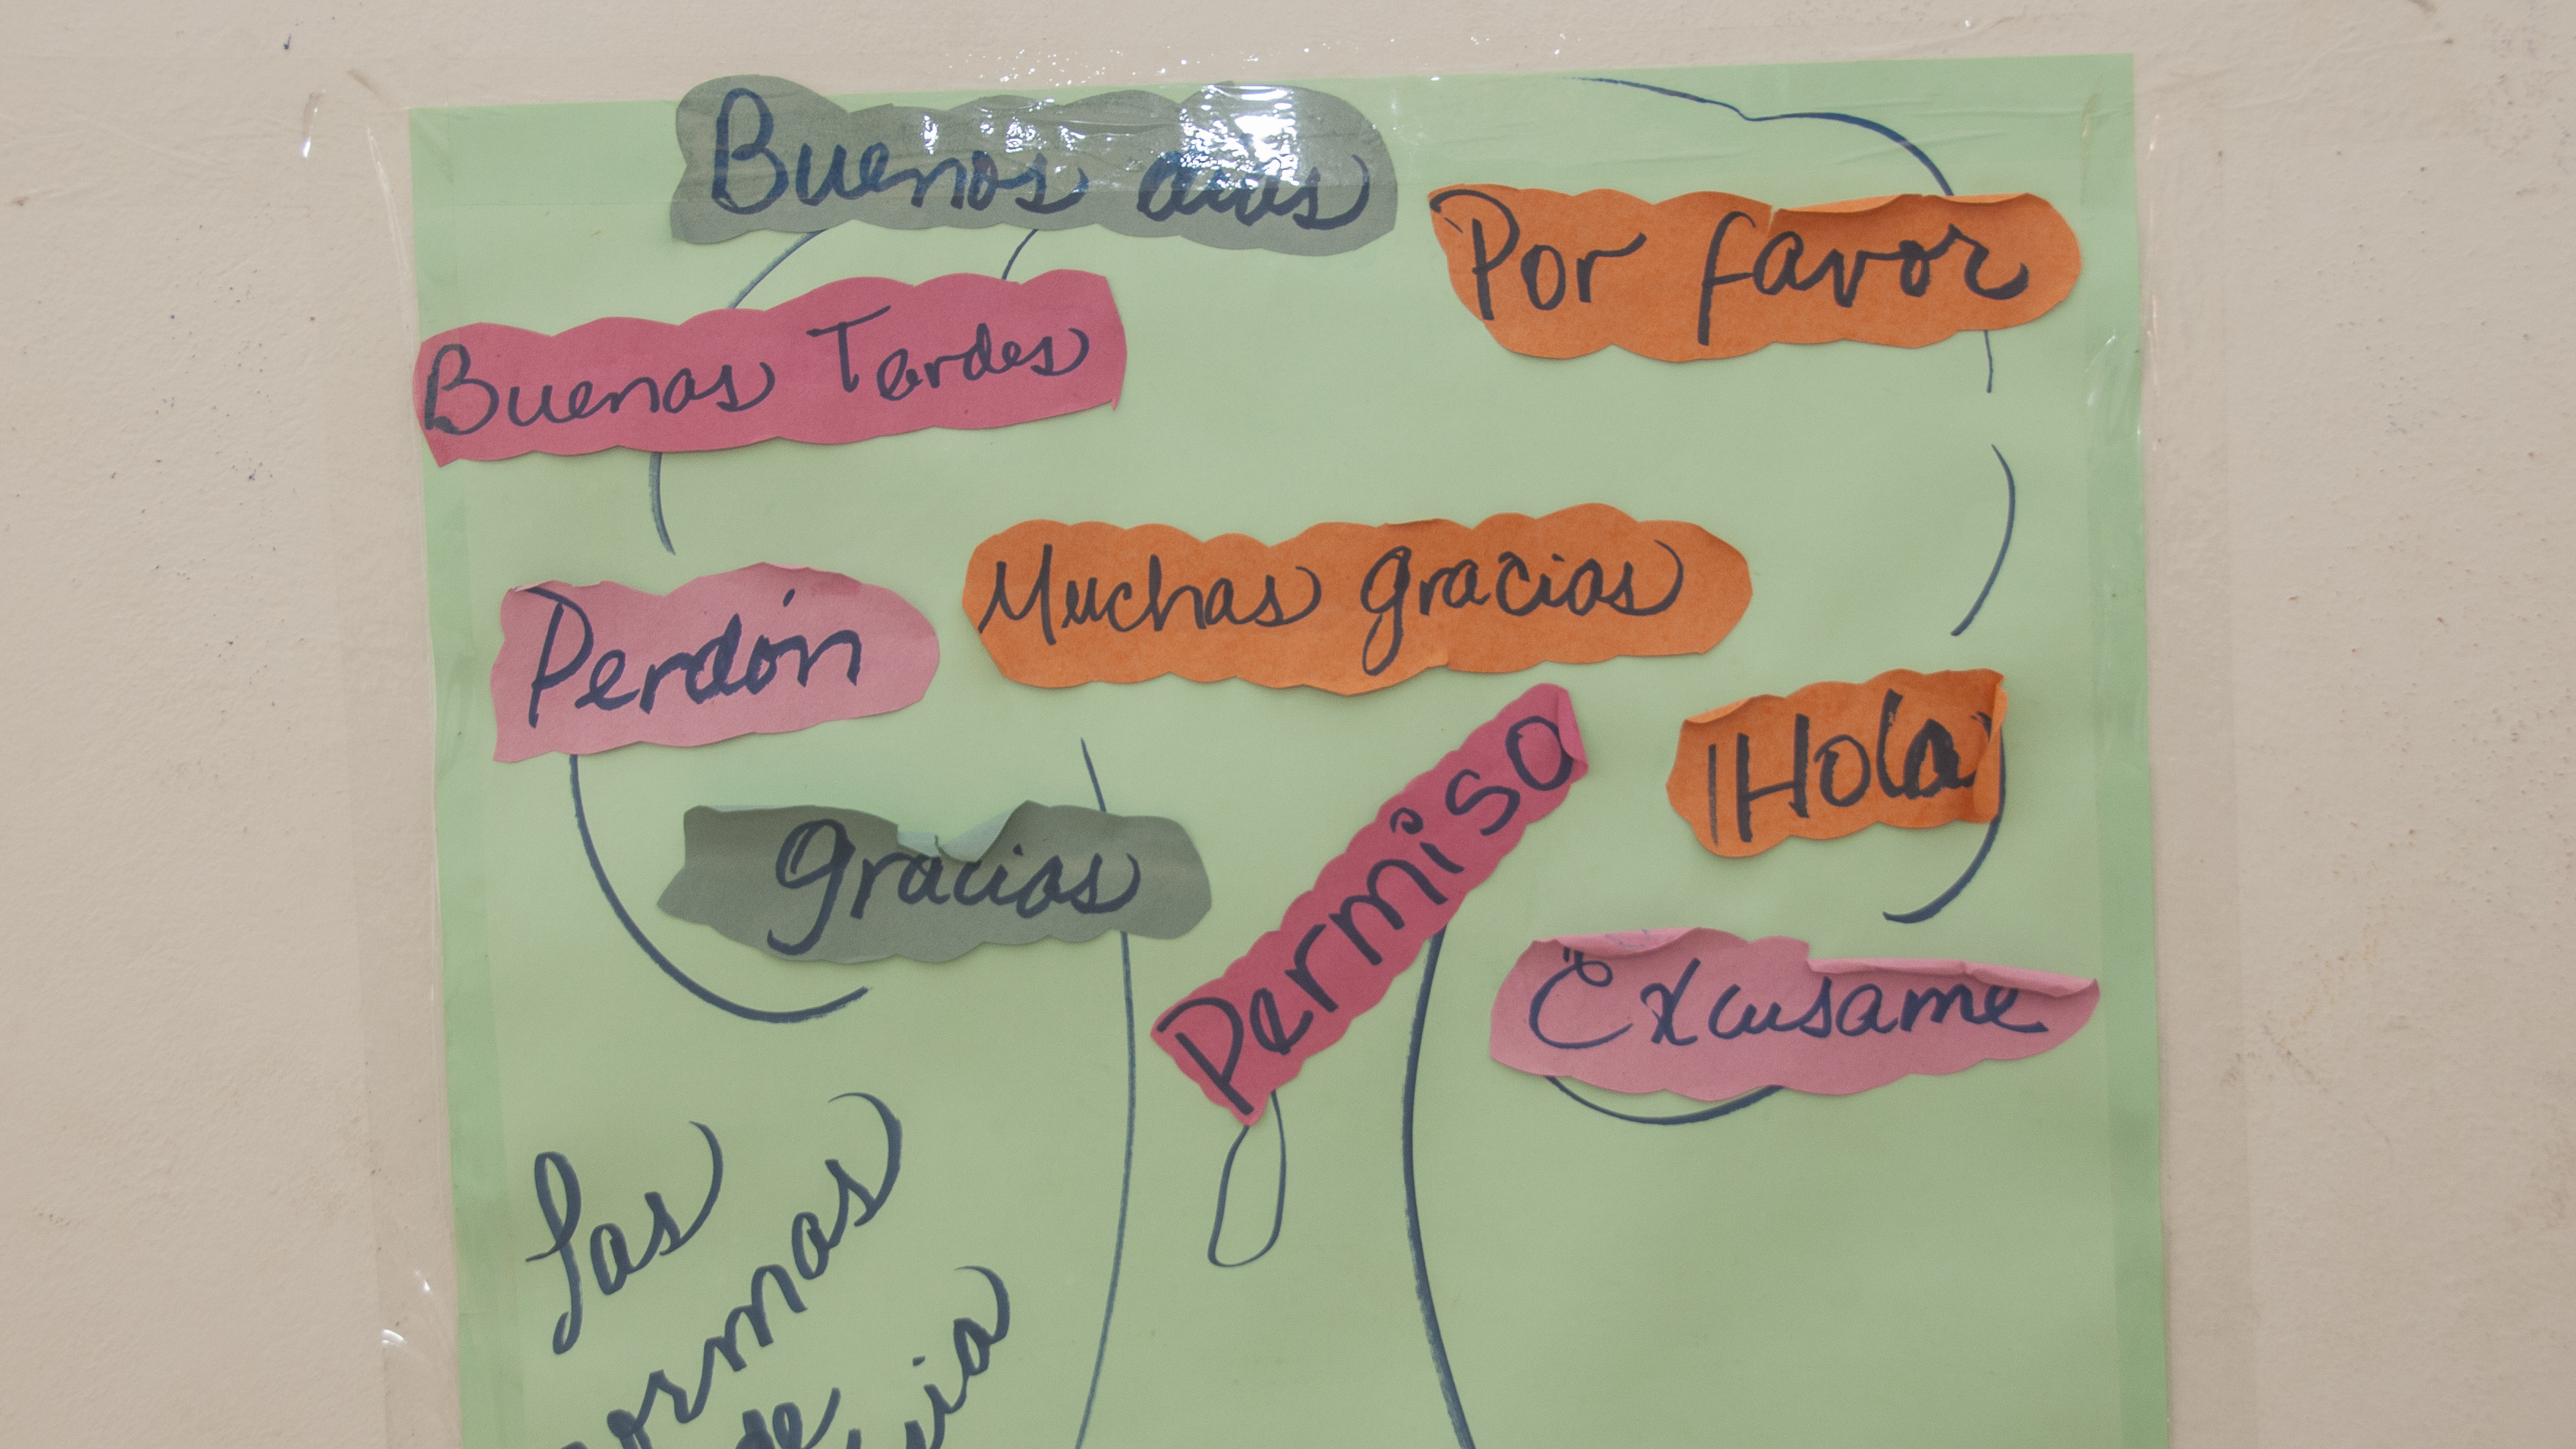 Buenos dias
Por favor
Buenas Tardes
Muchas gracias
Perdón
¡Hola
gracias
Permiso
Excusame
Las
de